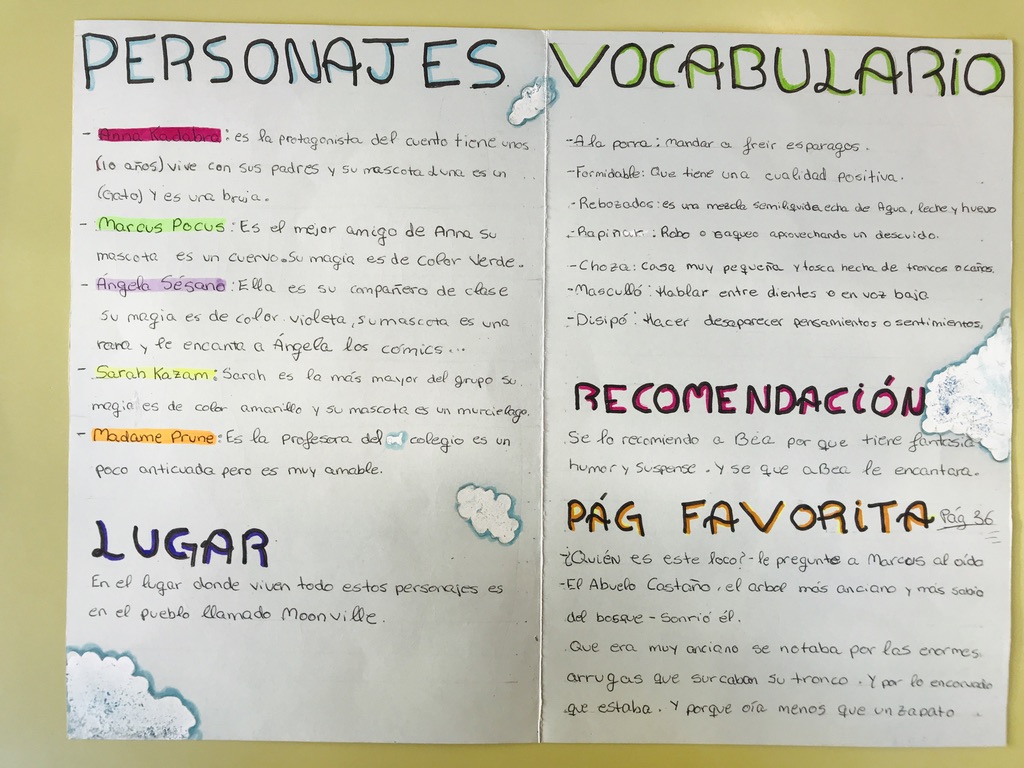 PERSONAJES
- Anna Kadabra: es la protagonista del cuento tiene unos
(10 años) vive con sus padres y su mascota Luna es un
(Gato) Y es una bruja.
- Marcus Pocus: Es el mejor amigo de Anna su
mascota es un cuervo. Su magia es de color verde.
- Ángela Sésano: Ella es su compañero de clase
su magia es de color violeta, su mascota es una
rana y le encanta a Ángela los cómics...
- Sarah Kazam: Sarah es la más mayor del grupo su
magia es de color amarillo y su mascota es un murcielago.
- Madame Prune: Es la profesora del colegio es un
poco anticuada pero es muy amable.
LUGAR
En el lugar donde viven todo estos personajes es
en el pueblo llamado Moonville.
VOCABULARIO
-A la porra: mandar a freir esparagos.
-Formidable: Que tiene una cualidad positiva.
-Rebozados: es una mezcla semiliquida, echa de Agua, leche y huevo
-Rapiñar: Robo o saqueo aprovechando un descuido.
-Choza: casa muy pequeña y tosca hecha de troncos o cañas.
-Masculló: Hablar entre dientes o en voz baja
-Disipó: Hacer desaparecer pensamientos o sentimientos.
RECOMENDACIÓN
Se lo recomiendo a Bea por que tiene fantasia
humor y suspense. Y se que a Bea le encantara.
PÁG FAVORITA Pág 36
¿Quién es este loco? - le pregunte a Marcus al oído
-El Abuelo Castaño, el arbol más anciano y más sabio
del bosque - Sonrió él.
Que era muy anciano se notaba por las enormes
arrugas que surcaban su tronco. Y por lo encorvado
que estaba. Y porque oía menos que un zapato